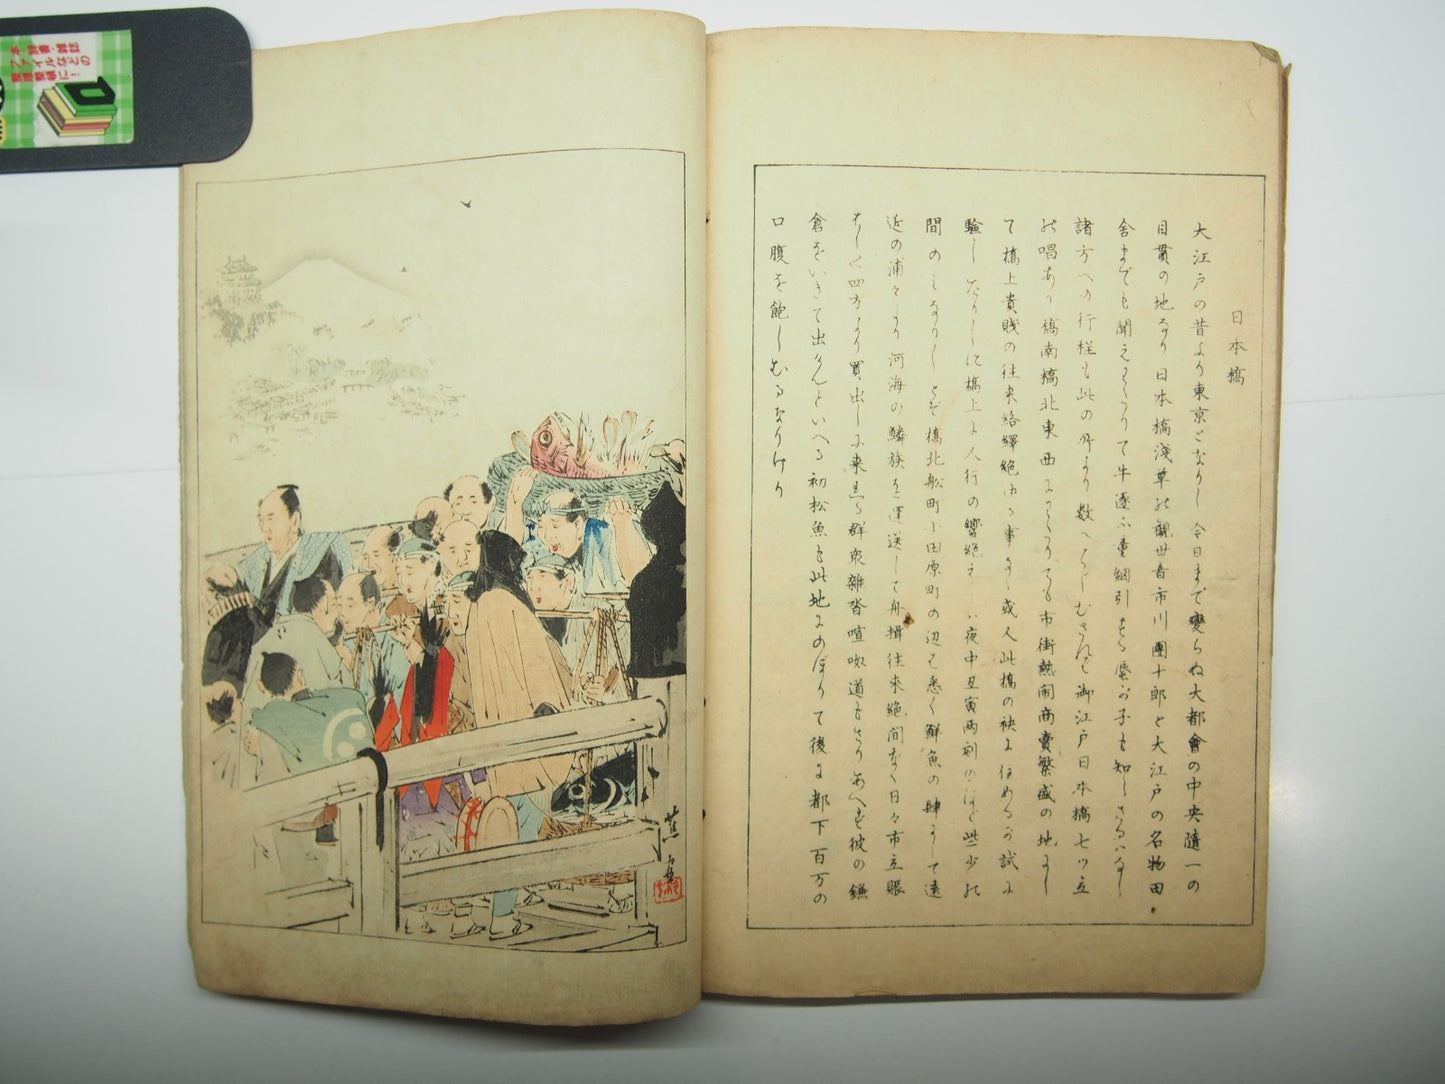 日本橋
大江戸の昔より東京となりし今日まで變らぬ大都會の中央隨一の
目貫の地なり日本橋淺草の觀世音市川團十郎と大江戸の名物田
舎までも聞えわたりて牛逐ふ童網引する蜑が子も知らざるハなし
諸方への行程も此の所より数へらじむされバ御江戸日本橋七ツ立
の唱あり橋南橋北東西にわたりても市街熱閙商賣繁盛の地にし
て橋上貴賎の往来絡繹絶ゆる事なし或人此橋の袂に住める が試に
驗し なりしに橋上に人行の響絶え ハ夜中丑寅両刻のほど些少の
間のミなりしとぞ橋北舩町小田原町の辺は悉く鮮魚の肆にして遠
近の浦々より河海の鱗族を運送して舟楫往来絶間なく日々市立賑
はしく四方より買出しに来 る群衆雜沓喧呶道もさりあへず彼の鎌
倉をいきて出けんといへる初松魚も此地にのぼりて後に都下百万の
口腹を飽しむるなりけり
蕉窓
本・辞書・雑誌
ファイルなどの
整理整頓に!